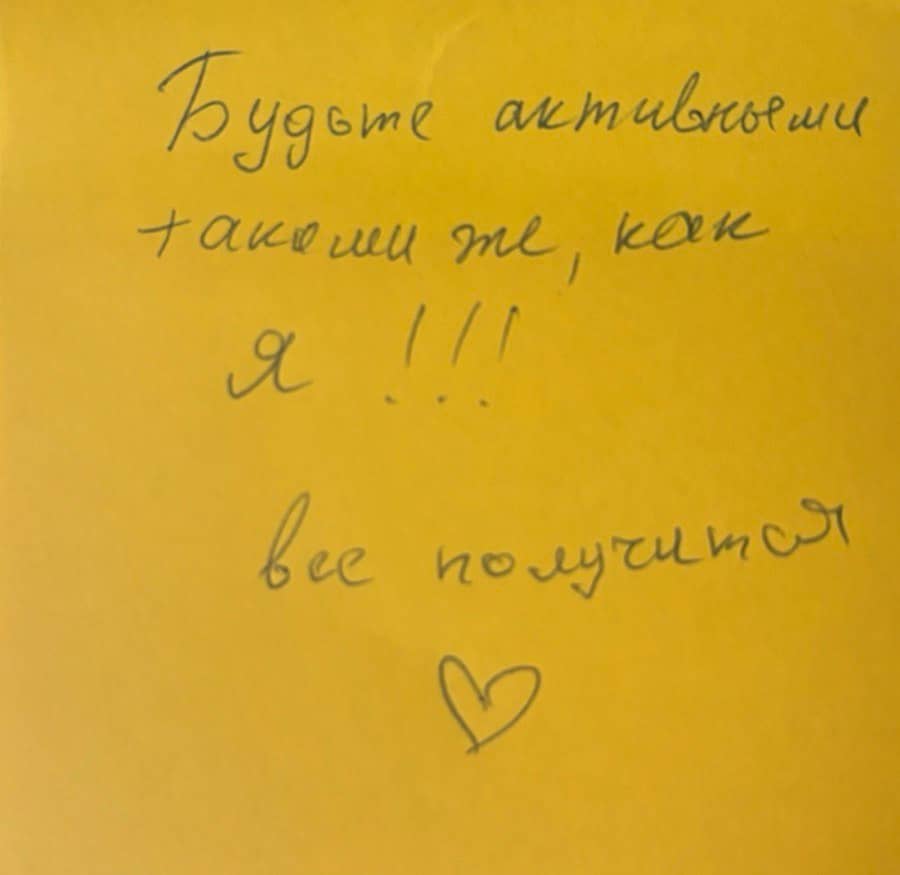 Будьте активными
такими же, как
я !!!
все получится